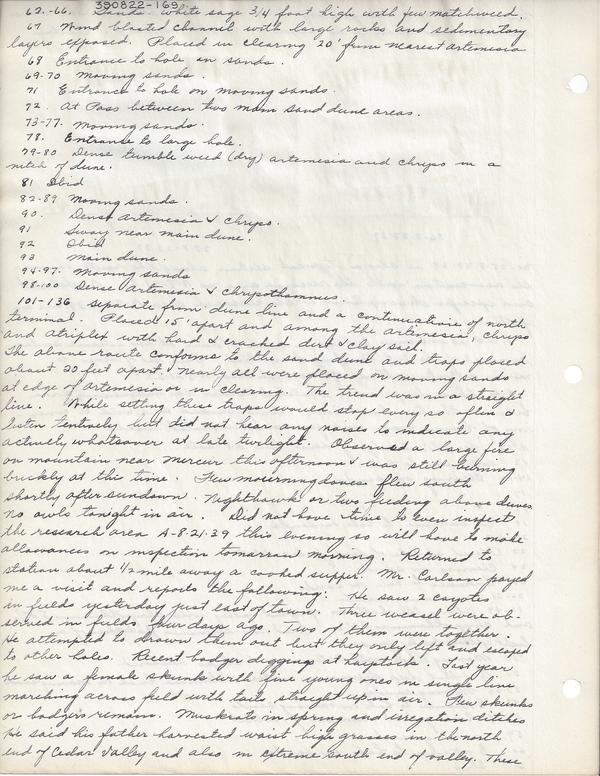 390822-169
62.-66. Sands white sage 3/4 foot high with few matchweed.
67 Wind blasted channel with large rocks and sedimentary
layers exposed. Placed in clearing 20' from nearest artemesia
68 Entrance to hole in sands.
69-70 Moving sands.
71 Entrance to hole on moving sands.
72. At Pass between two main sand dune areas.
73-77. Moving sands.
78. Entrance to large hole.
79-80 Dense tumble weed (dry) artemesia and chryso in a
nitch of dune.
81 Ibid
82-89 Moving sands.
90. Dense Artemesia & Chryso.
91 Sway near main dune.
92 Ibid
93 Main dune.
94-97. Moving sands
98-100 Dense Artemesia & Chrysothamnus.
101-136 separate from dune line and a continuation of north
terminal. Placed 15' apart and among the artemesia, chryso
and atriplex with hard & cracked dirt & clay soil.
The above route conforms to the sand dune and traps placed
about 20 feet apart. Nearly all were placed on moving sands
at edge of artemesia or in clearing. The trend was in a straight
line. While setting these traps would stop every so often &
listen tentively but did not hear any noises to indicate any
activity whatsover at late twilight. Observed a large fire
on mountain near Mercur this afternoon & was still burning
briskly at this time. Few mourning doves flew south
shortly after sundown. Nighthawk or two feeding above dunes
No owls tonight in air. Did not have time to even inspect
the research area A-8-21-39 this evening so will have to make
allowances on inspection tomarrow morning. Returned to
station about 1/2 mile away & cooked supper. Mr. Carlson payed
me a visit and reports the following: He saw 2 coyotes
in fields yesterday just east of town. Three weasel were ob-
served in fields four days ago. Two of them were together.
He attempted to drown them out but they only left and escaped
to other holes. Recent badger diggings at haystacks. Last year
he saw a female skunk with five young ones in single line
marching across field with tails straight up in air. Few skunks
or badgers remain. Muskrats in spring and irregation ditches
He said his father harvested waist high grasses in the north
end of Cedar Valley and also in extreme south end of valley. These